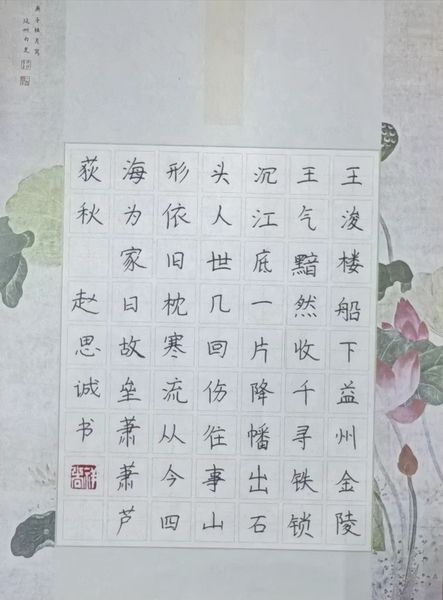 王浚楼船下益州金陵
王气黯然收千寻铁锁
沉江底一片降幡出石
头人世几回伤往事山
形依旧枕寒流从今四
海为家日故垒萧萧芦
荻秋 赵思诚书